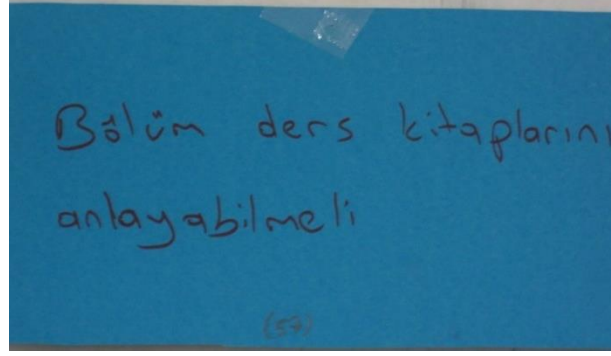 Bölüm ders kitaplarını
anlayabilmeli
(57)